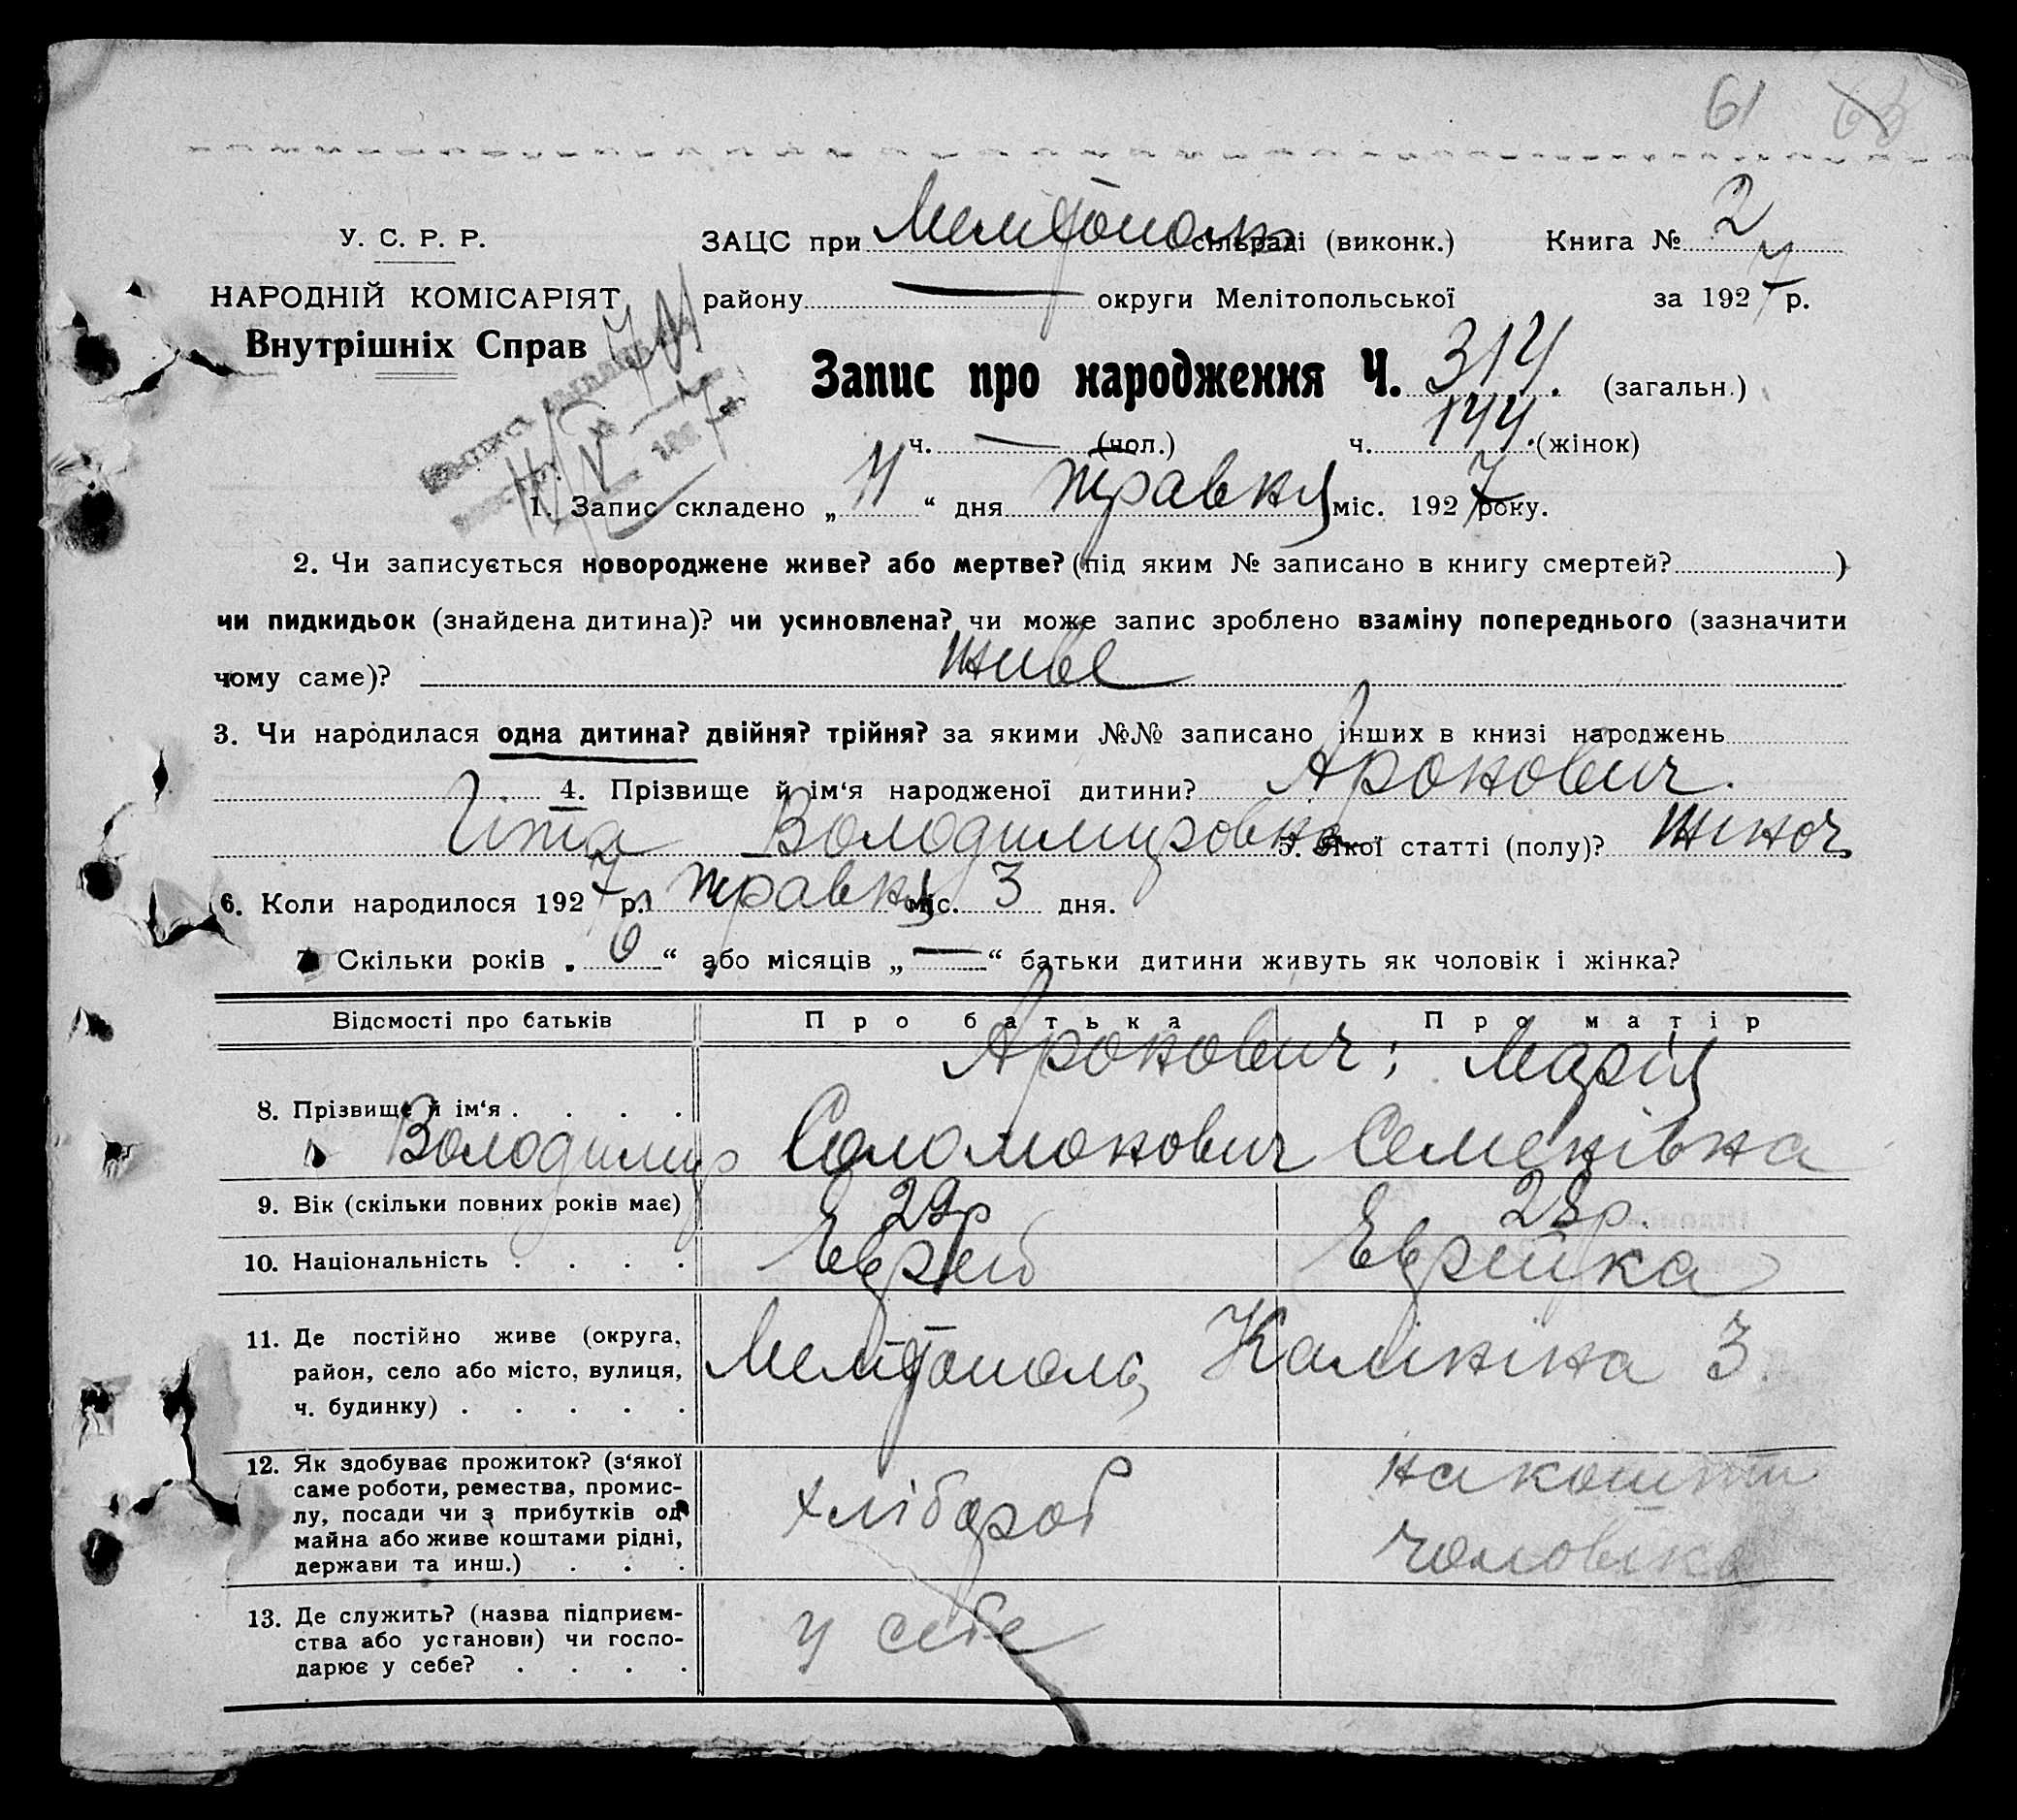 61
У. С. Р. Р.
НАРОДНІЙ КОМІСАРІЯТ
Внутрішніх Справ
ЗАЦС при Мелітополь сільраді (виконк.) Книга № 2
району — округи Мелітопольської за 1927 р.
Запис про народження Ч. 314. (загальн.)
ч. — (чол.) ч. 144. (жінок)
1. Запис складено „ 11 “ дня травня міс. 1927 року.
2. Чи записується новороджене живе? або мертве? (під яким № записано в книгу смертей? )
чи пидкидьок (знайдена дитина)? чи усиновлена? чи може запис зроблено взаміну попереднього (зазначити
чому саме)? живе
3. Чи народилася одна дитина? двійня? трійня? за якими №№ записано інших в книзі народжень
4. Прізвище й ім‘я народженої дитини? Аронович.
Іта Володимировна 5. Якої статті (полу)? жіноч
6. Коли народилося 1927 р. травня міс. 3 дня.
7. Скільки років „ 6 “ або місяців „ — “ батьки дитини живуть як чоловік і жінка?
Відомості про батьків Про батька Про матір
8. Прізвище й ім‘я . . . . Аронович; Марія
Володимир Соломонович Семенівна
9. Вік (скільки повних років має) 29р 28р.
10. Національність . . . . Еврей Еврейка
11. Де постійно живе (округа,
район, село або місто, вулиця,
ч. будинку) . . . . .
Мелітополь, Калініна 3.
12. Як здобуває прожиток? (з‘якої
саме роботи, ремества, промис-
лу, посади чи з прибутків од
майна або живе коштами рідні,
держави та инш.) . . .
хлібороб
на кошти
чоловіка
13. Де служить? (назва підприєм-
ства або установи) чи госпо-
дарює у себе? . . . .
у себе